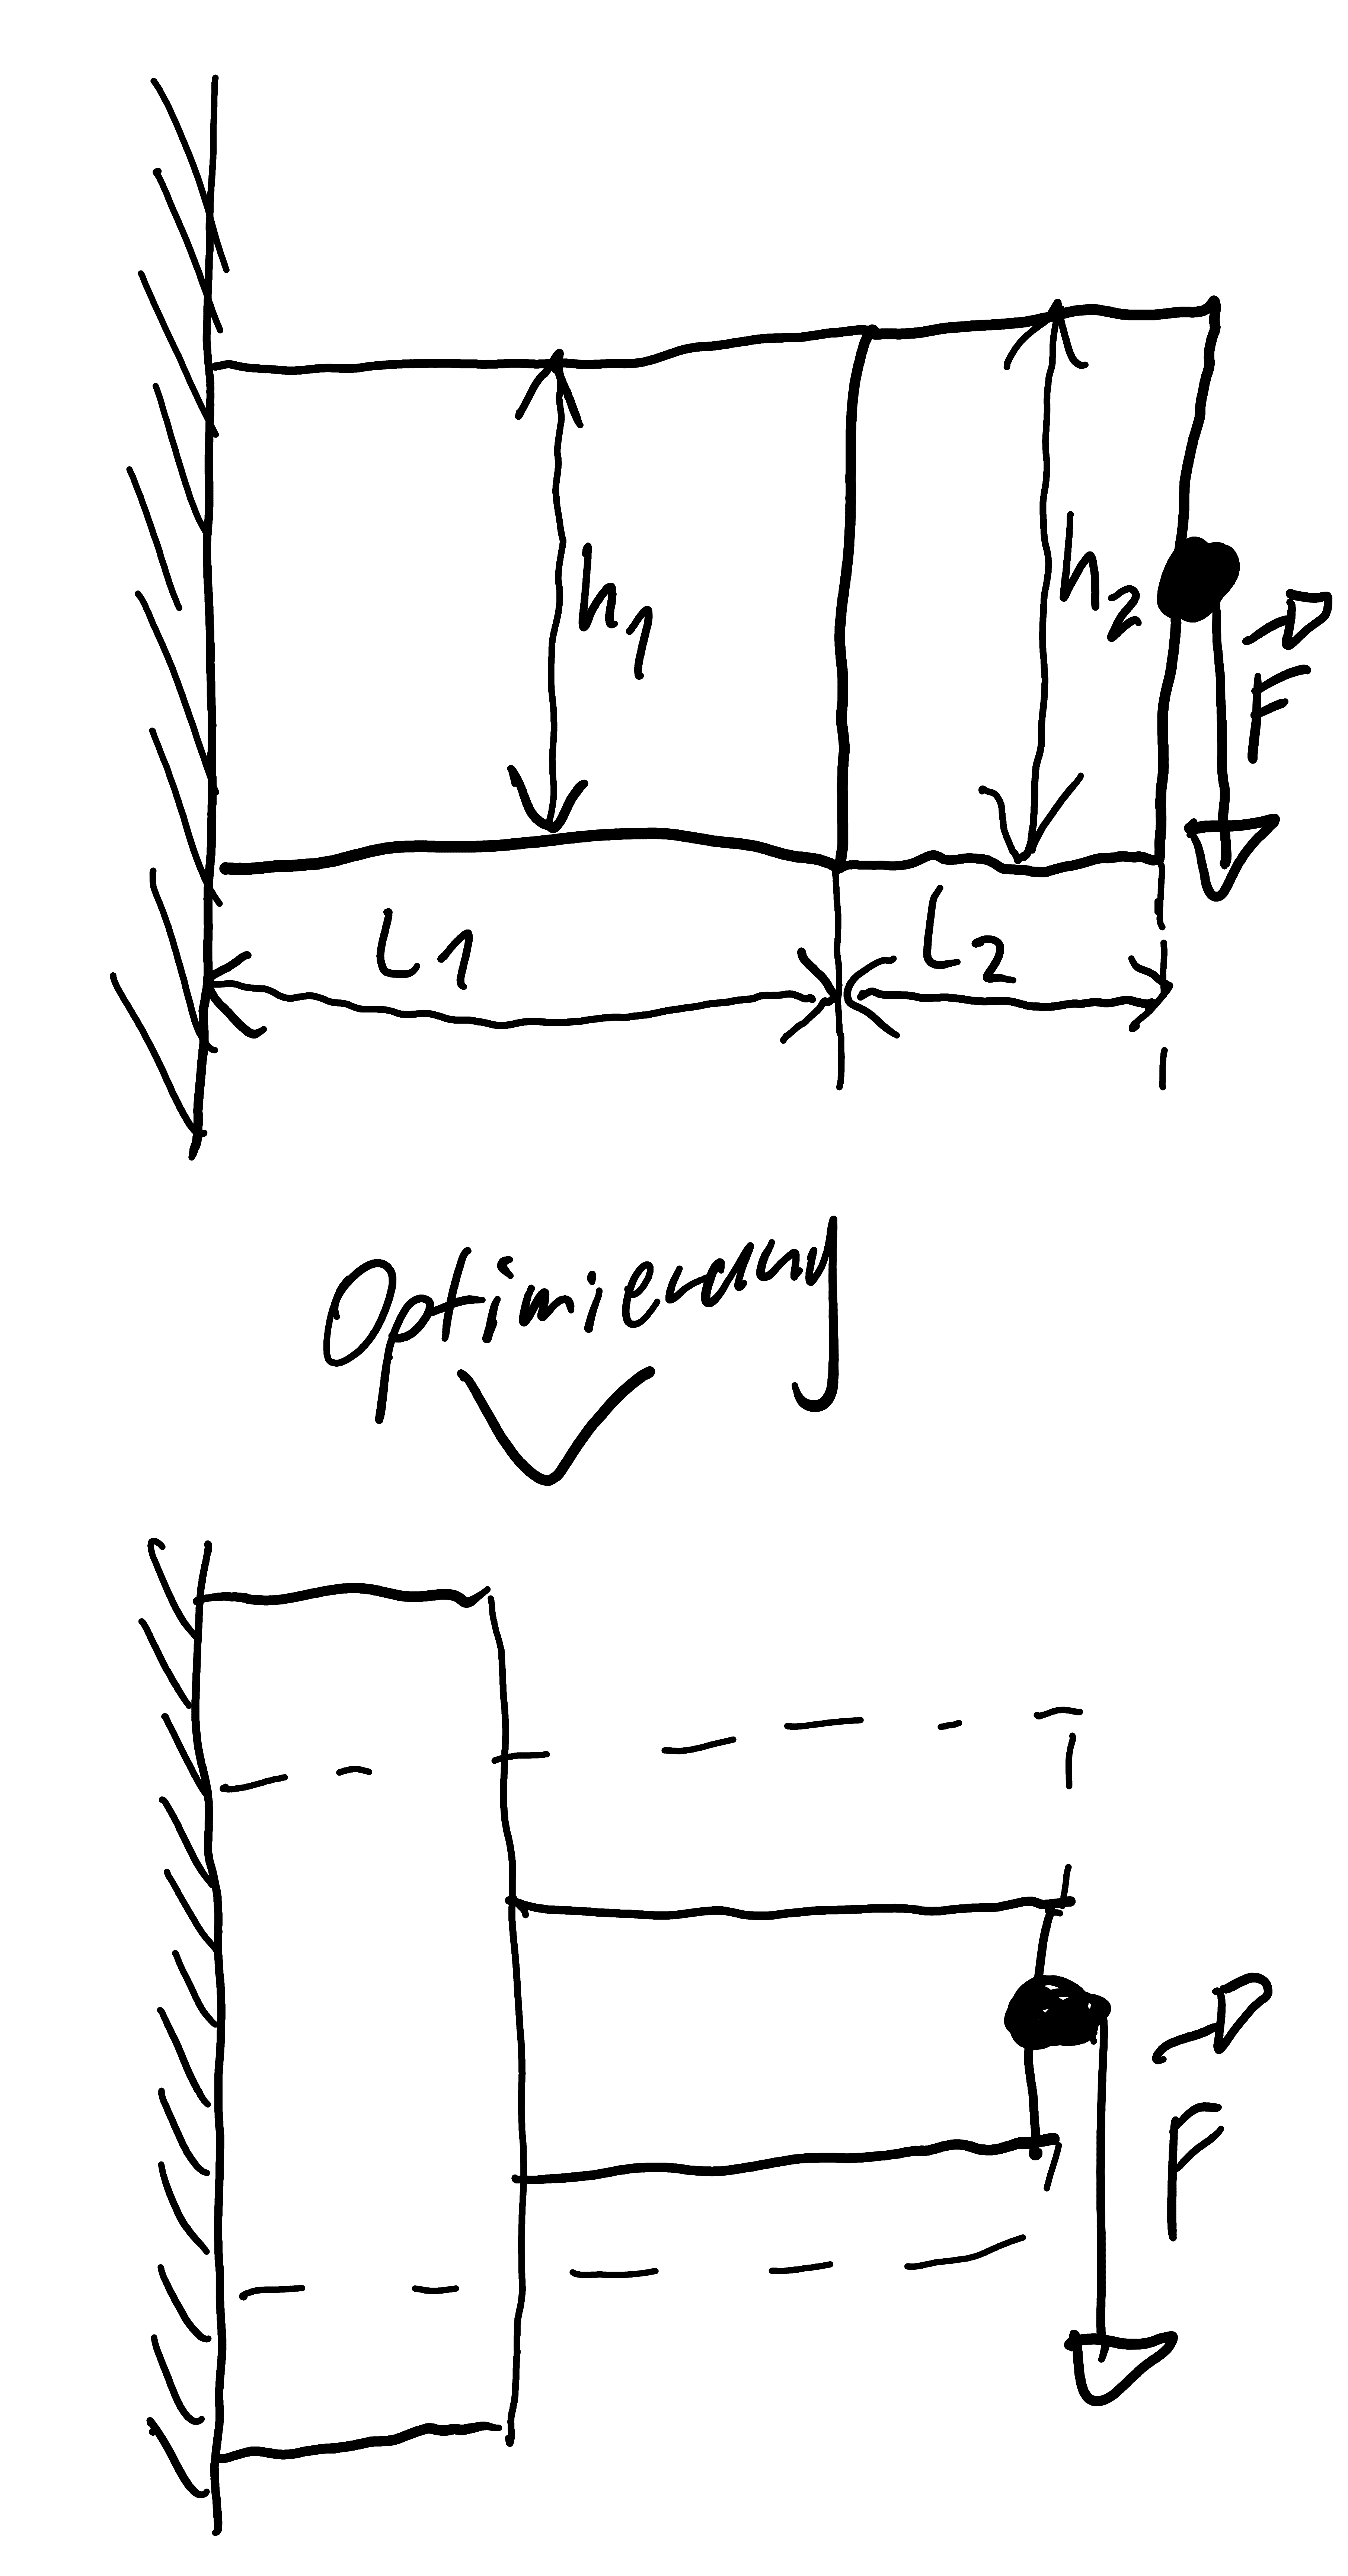 h1
h2
F
L1
L2
Optimierung
F